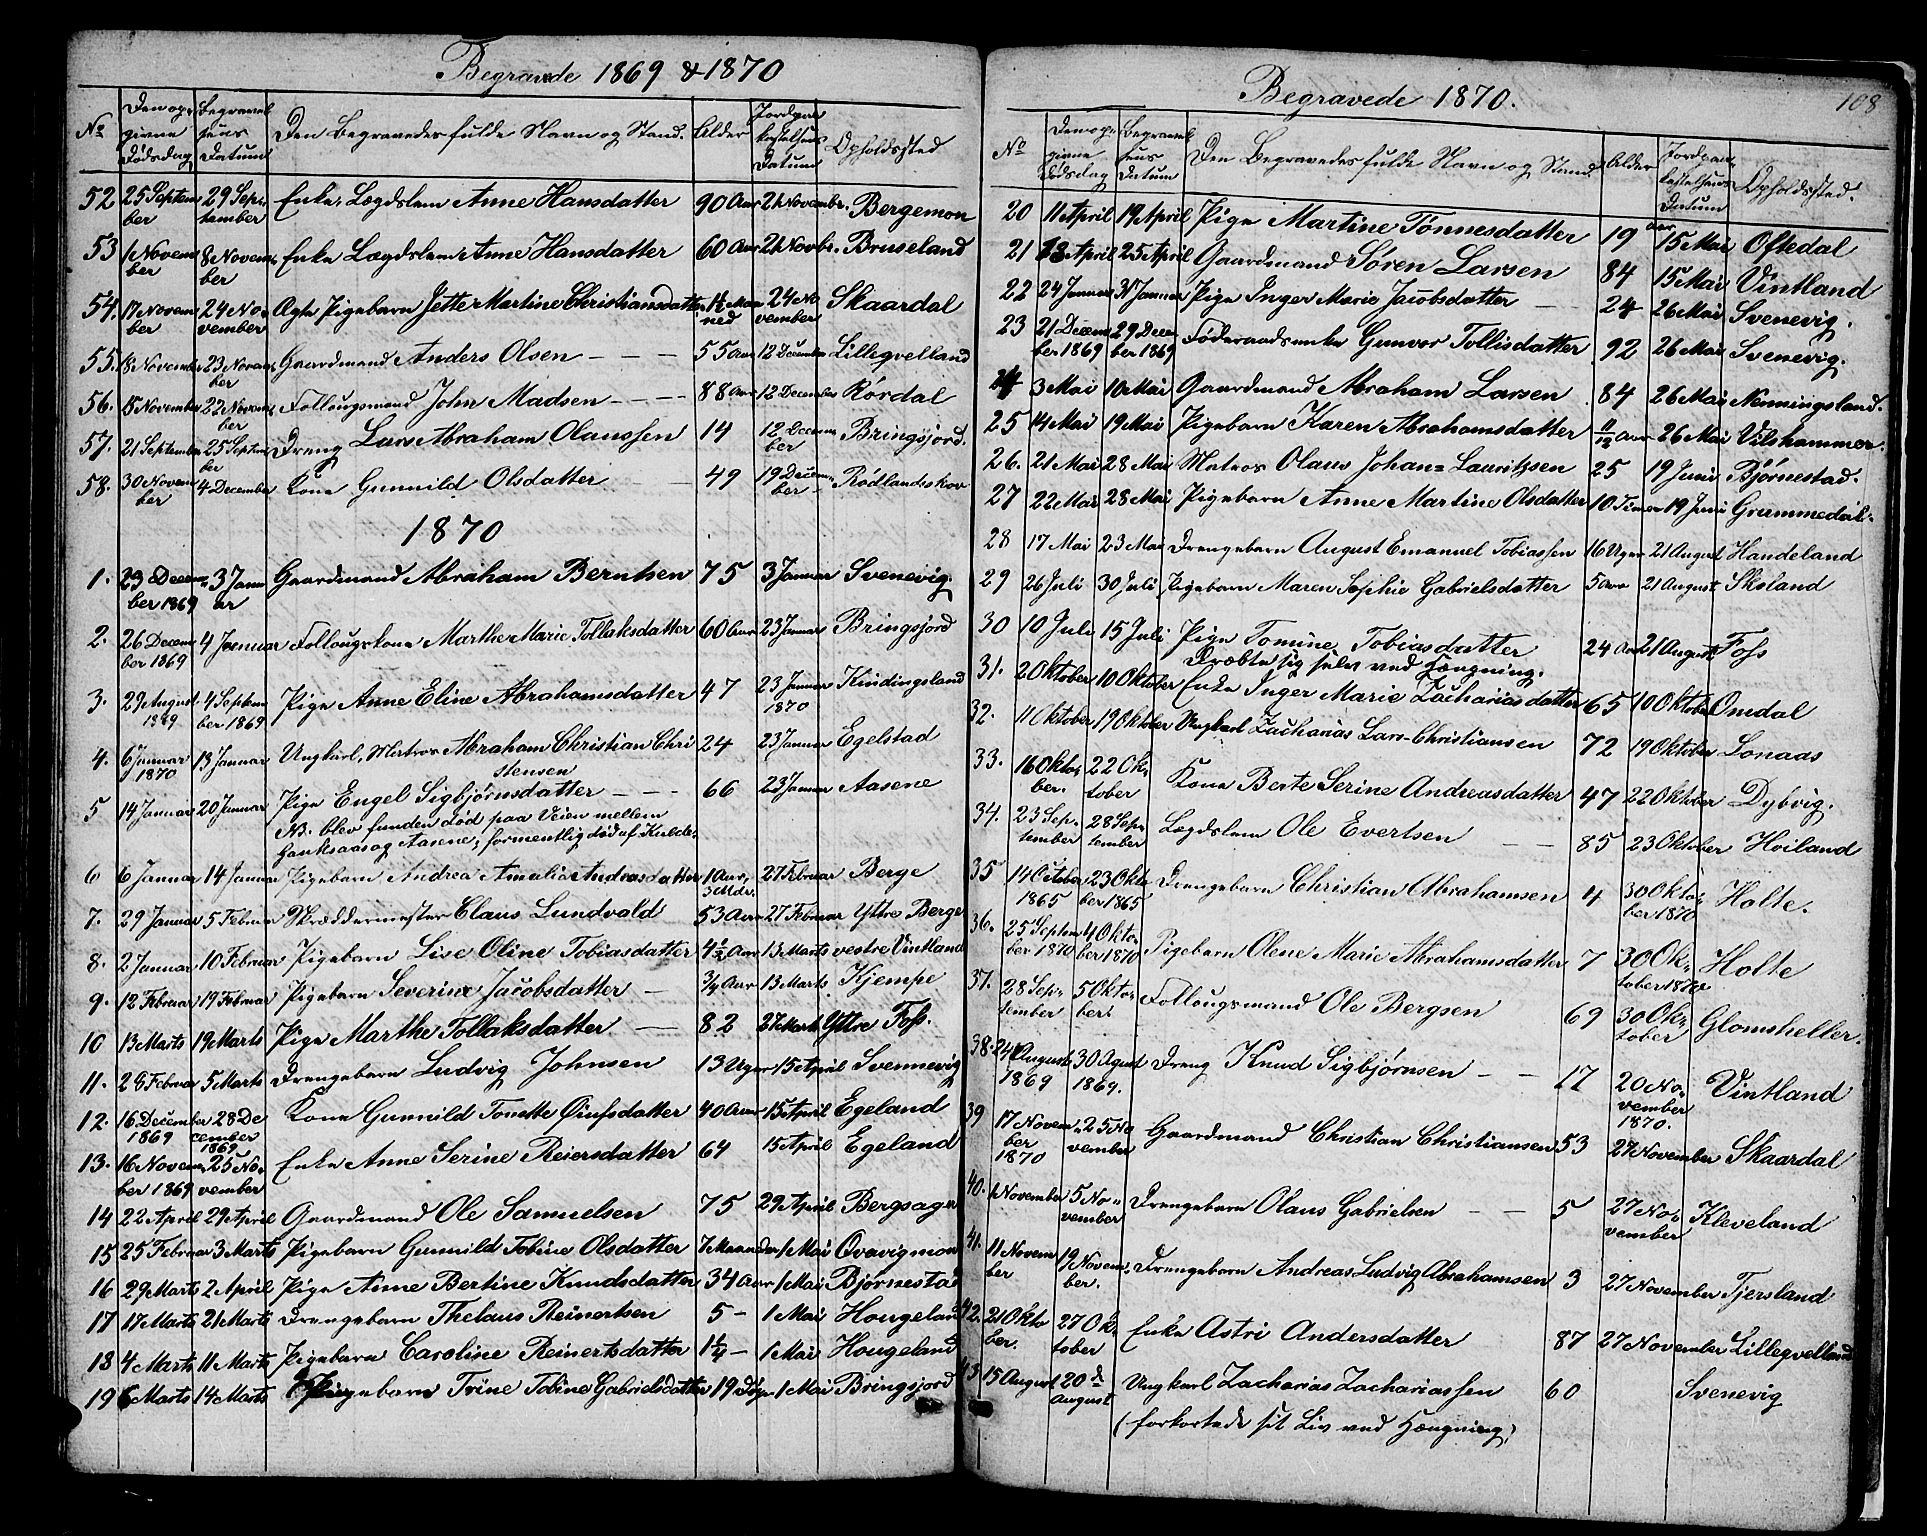 Begravede 1869 & 1870
No Den op-givne Dødsdag Begravelsens Datum Den Begravedes fulde Navn og Stand. Alder Jordpaakastelsens Datum Opholdssted
52 25 September 29 September Enke, Lægdslem Anne Hansdatter 90 Aar 21 Novembr. Bergemon
53 1 November 8 November Enke Lægdslem Anne Hansdatter 60 Aar 21 Novbr. Bruseland
54. 17 November 24 November Ægte Pigebarn Jette Martine Christiansdatter 1½ Maaned 24 November Skaardal
55. 18 November 23 November Gaardmand Anders Olsen - - - 55 Aar 12 December Lillegvelland
56. 15 November 22 November Follougsmand John Madsen - - - 88 Aar 12 December Rørdal
57. 21 September 25 September Dreng Lars Abraham Olaussen 14 12 December Bringsjord.
58. 30 November 4 December Kone Gunnild Olsdatter 49 19 December Rødlandskov
1870
1. 23 December 1869 3 Januar Gaardmand Abraham Berntsen 75 3 Januar Svenevig.
2. 26 December 1869 4 Januar Follougskone Marthe Marie Tollaksdatter 60 Aar 23 Januar Bringsjord
3. 29 August 1869 4 September 1869 Pige Anne Eline Abrahamsdatter 47 23 Januar 1870 Kindingsland
4. 6 Januar 1870 13 Januar Ungkarl, Matros Abraham Christian Christensen 24 23 Januar Egelstad
5 14 Januar 20 Januar Pige Engel Sigbjørnsdatter - - - 66 23 Januar Aasene
NB. blev funden død paa Veien mellem
Hanksaas og Aasene, formentlig død af Kulde.
6 6 Januar 14 Januar Pigebarn Andrea Amalia Andreasdatter 1 Aar, 3 Mdr. 27 Februar Berge
7. 29 Januar 5 Februar Skræddermester Claus Lundvald 53 Aar 27 Februar Yttre Berge
8. 2 Januar 10 Februar Pigebarn Lise Oline Tobiasdatter 4½ Aar 13 Marts vestre Vintland
9. 12 Februar 19 Februar Pigebarn Severine Jacobsdatter - ¾ Aar 13 Marts Kjempe
10 13 Marts 19 Marts Pige Marthe Tollaksdatter - 82 27 Marts Yttre Foss.
11. 28 Februar 5 Marts Drengebarn Ludvig Johnsen 13 Uger 15 April Svennevig
12. 16 December 1869 28 December 1869 Kone Gunnild Tonette Øiufsdatter 40 Aar 15 April Egeland
13. 16 November 1869 25 November Enke Anne Serine Reiersdatter 64 15 April Egeland
14 22 April 29 April Gaardmand Ole Samuelsen 75 29 April Bergsager
15 25 Februar 3 Marts Pigebarn Gunnild Tobine Olsdatter 7 Maaneder 1 Mai Qvavigmon
16 29 Marts 2 April Pige Anne Bertine Knudsdatter 34 Aar 1 Mai Bjørnestad
17 17 Marts 21 Marts Drengebarn Thelaus Reinertsen 5 - 1 Mai Hougeland
18 4 Marts 11 Marts Pigebarn Caroline Reinertsdatter 1¼ - 1 Mai Hougeland
19 6 Marts 14 Marts Pigebarn Trine Tobine Gabrielsdatter 19 Dage 1 Mai Bringsjord
Begravede 1870.
108
No Den op-givne Dødsdag Begravelsens Datum Den Begravedes fulde Navn og Stand. Alder Jordpaakastelsens Datum Opholdssted.
20 11 April 19 April Pige Martine Tønnesdatter 19 Aar 15 Mai Oftedal
21 13 April 25 April Gaardmand Søren Larsen 84 15 Mai Vintland
22 24 Januar 31 Januar Pige Inger Marie Jacobsdatter - 24 26 Mai Svenevig.
23 21 December 1869 29 December 1869 Føderaadsenke Gunvor Tollisdatter 92 26 Mai Svenevig.
24 3 Mai 10 Mai Gaardmand Abraham Larsen 84 26 Mai Nenningsland.
25 14 Mai 19 Mai Pigebarn Karen Abrahamsdatter 11/12 Aar 26 Mai Vilshammer.
26. 21 Mai 28 Mai Matros Olaus Johan= Lauritzsen 25 19 Juni Bjørnestad.
27 22 Mai 28 Mai Pigebarn Anne Martine Olsdatter 10 Timer 19 Juni Grummedal.
28 17 Mai 23 Mai Drengebarn August Emanuel Tobiassen 16 Uger 21 August Handeland
29 26 Juli 30 Juli Pigebarn Maren Sophie Gabrielsdatter 5 Aar 21 August Skoland
30 10 Juli 15 Juli Pige Tomine Tobiasdatter 24 Aar 21 August Foss
Dræbte sig selv ved Hængning.
31. 2 Oktober 10 Oktober Enke Inger Marie Zachariasdatter 65 10 Oktober Omdal
32. 11 Oktober 19 Oktober Ungkarl Zacharias Lars-Christiansen 72 19 Oktober Lonaas
33. 16 Oktober. 22 Oktober Kone Berte Serine Andreasdatter 47 22 Oktober Dybvig.
34. 23 September 28 September Lægdslem Ole Evertsen - - 85 23 Oktober Hoiland
35 14 October 1865 23 Oktober 1865 Drengebarn Christian Abrahamsen 4 30 Oktober 1870 Holte.
36. 25 September 1870 4 Oktober 1870 Pigebarn Olene Marie Abrahamsdatter 7 30 Oktober 1870 Holte
37. 28 September 5 Oktober Follougsmand Ole Bergsen 69 30 Oktober Glomsheller.
38. 24 August 1869 30 Agust 1869. Dreng Knud Sigbjørnsen - - 17 20 November 1870. Vintland
39 17 November 1870 25 November Gaardmand Christian Christiansen 53 27 November Skaardal
40. 1 November 5 November Drengebarn Olaus Gabrielsen - - 5 27 November Kleveland
41. 11 November 19 November. Drengebarn Andreas Ludvig Abrahamsen 3 27 November Tjersland
42. 21 Oktober. 27 Oktober Enke Astri Andersdatter 87 27 November Lillegvelland
43 15 August 20 d August Ungkarl Zacharias Zachariassen 60 Svenevig
(forkortede sit Liv ved Hængning)